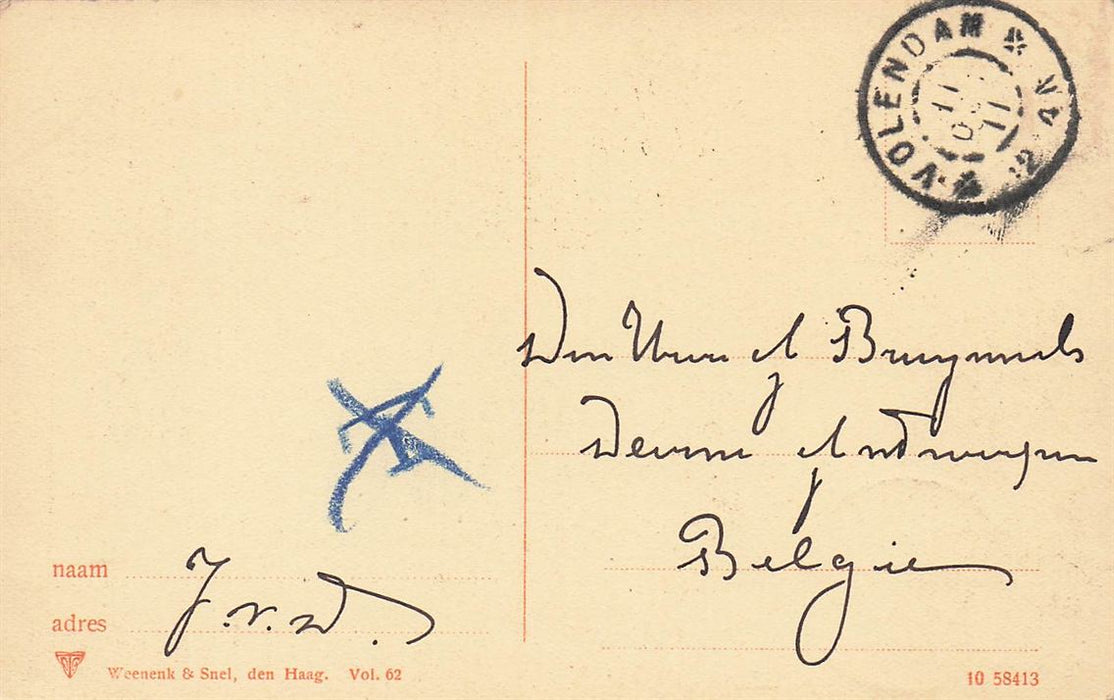 VOLENDAM
Den Heer J Bruynseels
Deurne Antwerpen
Belgie
naam J.v.D.
adres
Weenenk & Snel, den Haag. Vol. 62
10 58413